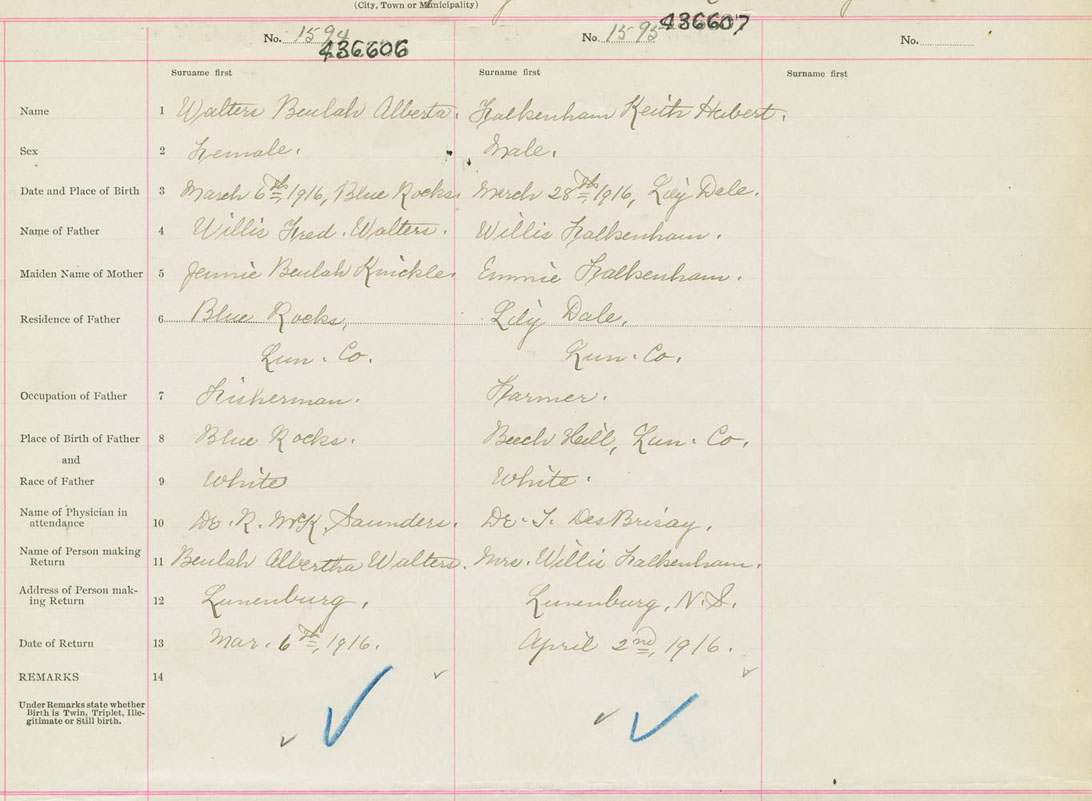 (City, Town or Municipality)
No. 1594 No. 1595 No.
436606 436607
Surname first Surname first Surname first
Name 1 Walters Beulah Alberta. Falkenham Keith Hubert.
Sex 2 Female. Male.
Date and Place of Birth 3 March 6th 1916, Blue Rocks. March 28th 1916, Lily Dale.
Name of Father 4 Willis Fred. Walters. Willis Falkenham.
Maiden Name of Mother 5 Jennie Beulah Knickle. Emmie Falkenham.
Residence of Father 6 Blue Rocks, Lily Dale,
Lun. Co. Lun. Co.
Occupation of Father 7 Fisherman. Farmer.
Place of Birth of Father 8 Blue Rocks. Beech Hill, Lun. Co.
and
Race of Father 9 White White.
Name of Physician in
attendance 10 Dr. R. McK Saunders. Dr. T. DesBrisay.
Name of Person making
Return 11 Beulah Albertha Walters. Mrs. Willis Falkenham.
Address of Person mak-
ing Return 12 Lunenburg. Lunenburg, N.S.
Date of Return 13 Mar. 6th, 1916. April 2nd, 1916.
REMARKS 14
Under Remarks state whether
Birth is Twin, Triplet, Ille-
gitimate or Still birth.